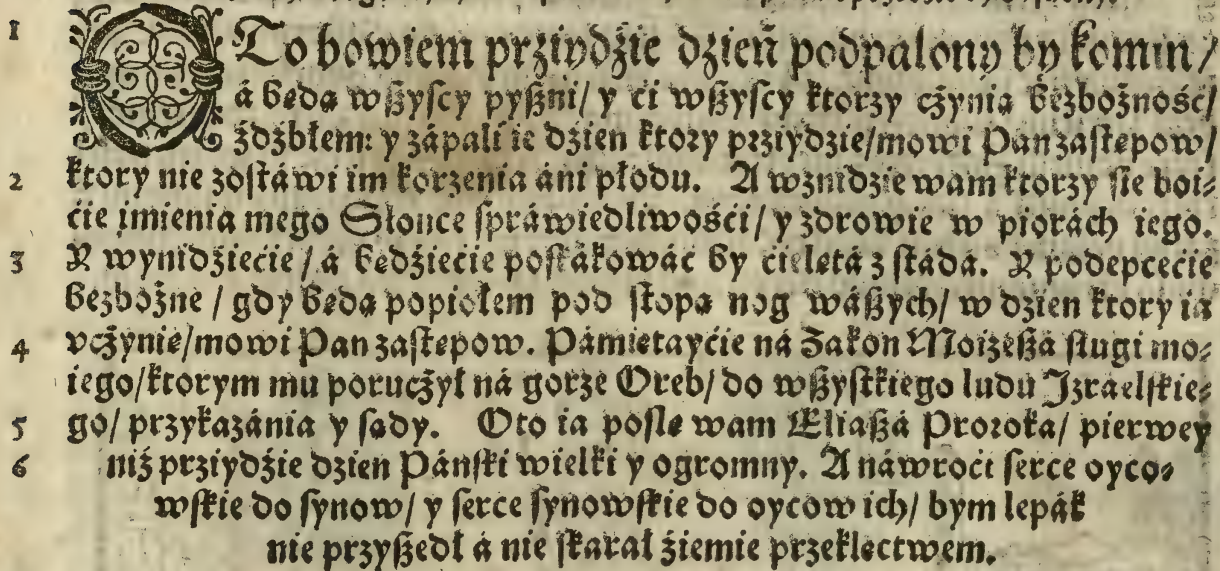 1 OTo bowiem prziydźie dźień podpalony by komin/
á będą wszyscy pyszni/ y ci wszyscy ktorzy czynią bezbożność/
źdźbłem: y zápali ie dzien ktory prziydzie/mowi Pan zastępow/
2 ktory nie zostáwi im korzenia áni płodu. A wznidzie wam ktorzy sie boi-
ćie imienia mego Słonce spráwiedliwośći/ y zdrowie w piorách iego.
3 Y wynidźiećie/ á będźiećie poskákowáć by cielętá z stádá. Y podepcećie
bezbożne/ gdy będą popiołem pod stopą nog wászych/ w dzien ktory ia
4 vczynię/mowi Pan zastępow. Pámiętayćie ná Zakon Moiżeszá sługi mo-
iego/ktorym mu poruczył ná gorze Oreb/ do wszystkiego ludu Izraelskie-
5 go/ przykazánia y sądy. Oto ia poślę wam Eliaszá Proroka/ pierwey
6 niż prziydźie dzien Páński wielki y ogromny. A náwroci serce oyco-
wskie do synow/ y serce synowskie do oycow ich/ bym lepák
nie przyszedł á nie skarał źiemie przeklectwem.